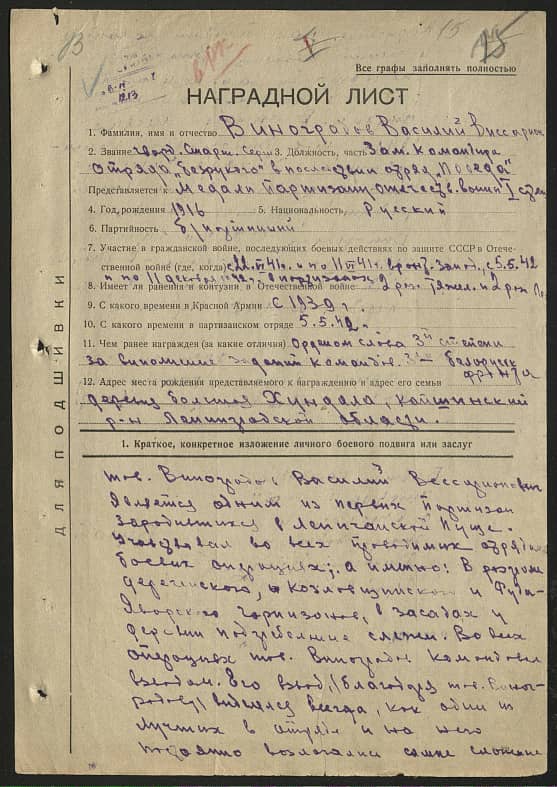 15
Все графы заполнять полностью
НАГРАДНОЙ ЛИСТ
1. Фамилия, имя и отчество Виноградов Василий Виссарион
2. Звание Гвард. Старш. Серж 3. Должность, часть Зам. Командира
отряда "Безрукого" в последствии отряд "Победа"
Представляется к медали Партизану отечеств. войны I степ
4. Год рождения 1916 5. Национальность Русский
6. Партийность б/партийный
7. Участие в гражданской войне, последующих боевых действиях по защите СССР в Отече-
ственной войне (где, когда) по 11 VII 41г. с 5.5.42
8. Имеет ли ранения и контузии в Отечественной войне 2
9. С какого времени в Красной Армии с 1939 г.
10. С какого времени в партизанском отряде 5.5.42 г.
11. Чем ранее награжден (за какие отличия) Орденом слава 3й степени
за выполнение заданий командов. 3го белорусск
фронта
12. Адрес места рождения представляемого к награждению и адрес его семьи
деревня большая Хундала, Койшинский
р-н Ленинградской области.
ДЛЯ ПОДШИВКИ
1. Краткое, конкретное изложение личного боевого подвига или заслуг
тов. Виноградов Василий Виссарионович
является одним из первых партизан
зародившихся в Липичанской Пуще.
Участвовал во всех проводимых отрядом
боевых операциях; а именно: В разгроме
деречинского, Козловщинского и Руда-
Яворского гарнизонов, в засадах у
деревни. Во всех
операциях тов. Виноградов командовал
взводом. Его взвод, (благодаря тов. Вино-
градову) виделялся всегда, как один из
лучших в отряде и на него
возлагались самые сложные